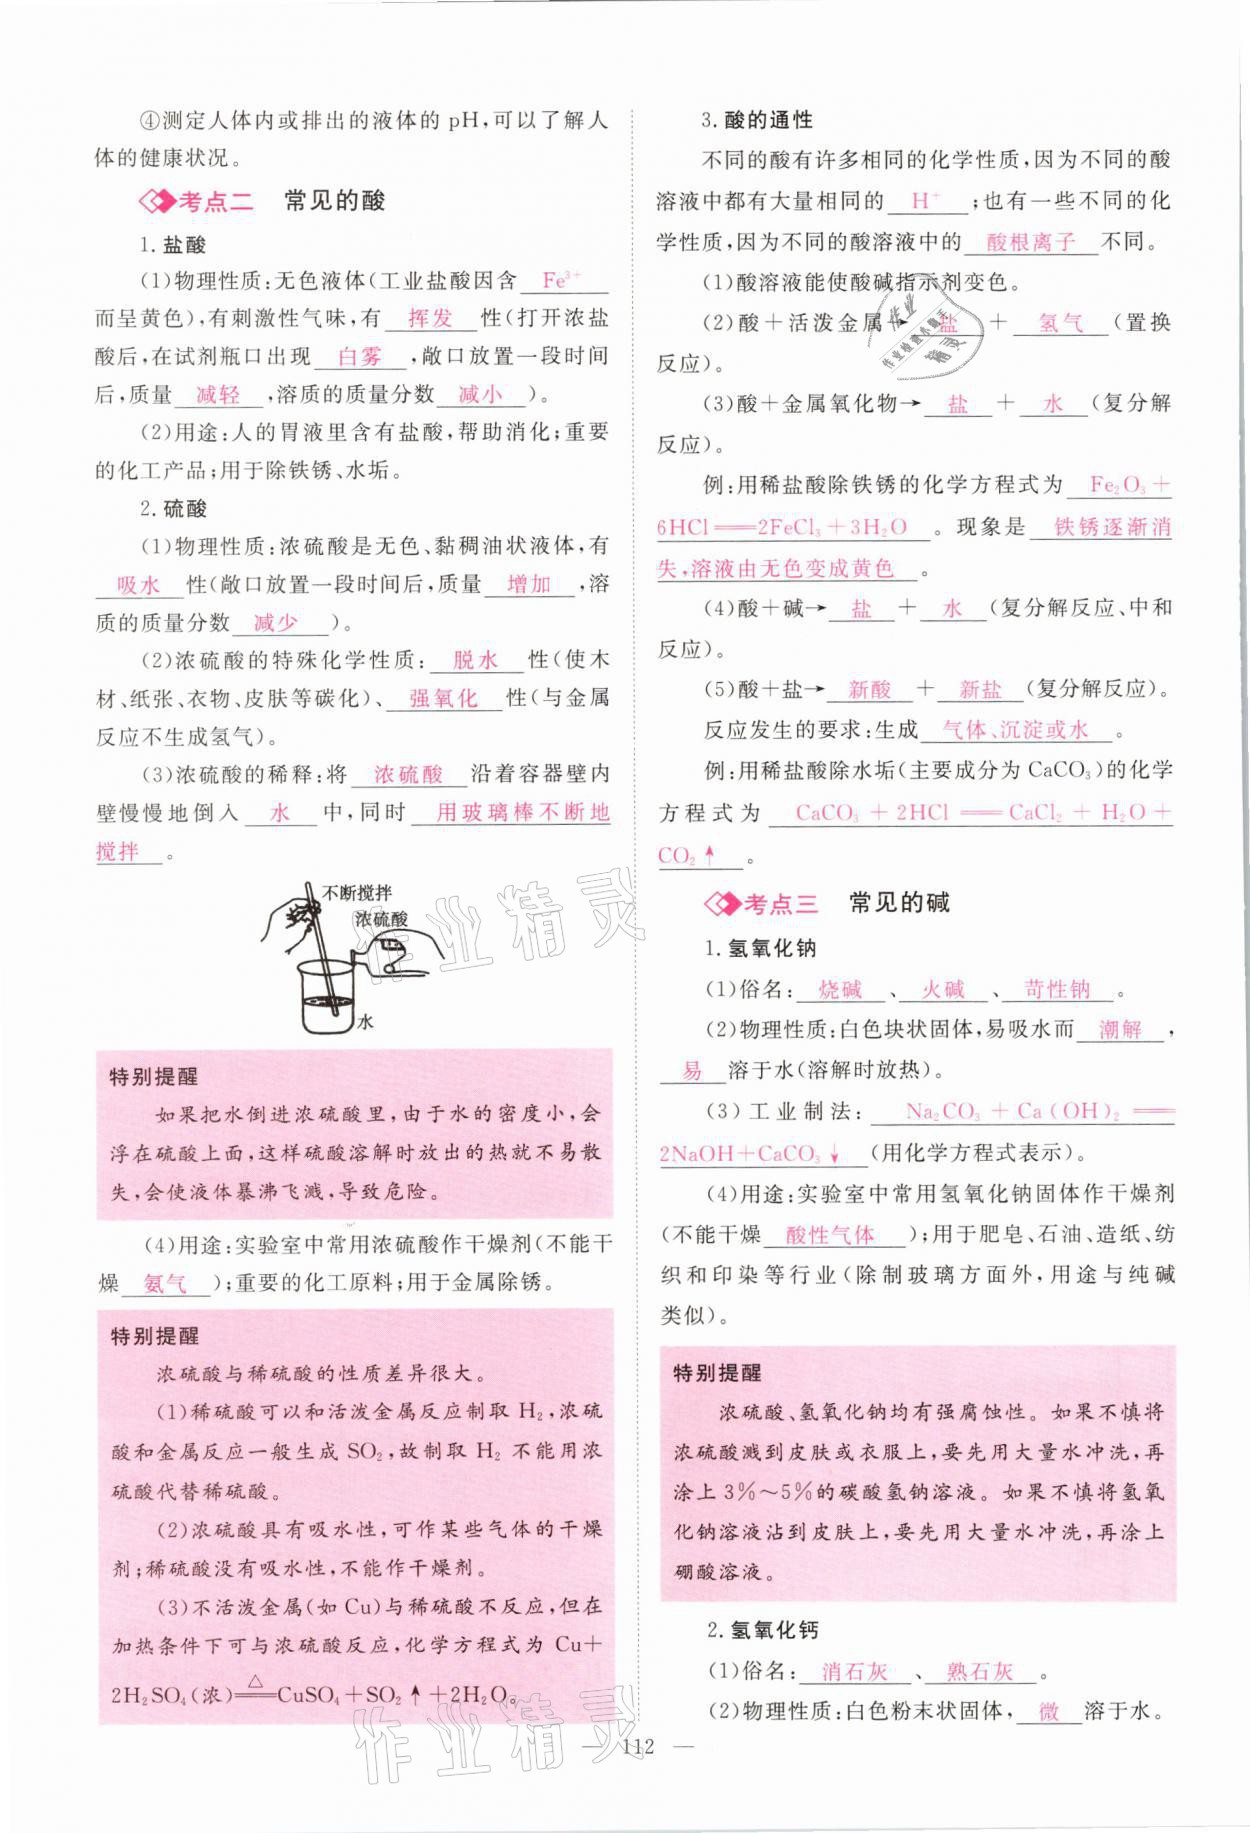 ④测定人体内或排出的液体的 pH,可以了解人
体的健康状况。
考点二 常见的酸
1.盐酸
(1)物理性质:无色液体(工业盐酸因含 Fe³⁺
而呈黄色),有刺激性气味,有 挥发 性(打开浓盐
酸后,在试剂瓶口出现 白雾 ,敞口放置一段时间
后,质量 减轻 ,溶质的质量分数 减小 )。
(2)用途:人的胃液里含有盐酸,帮助消化;重要
的化工产品;用于除铁锈、水垢。
2.硫酸
(1)物理性质:浓硫酸是无色、黏稠油状液体,有
吸水 性(敞口放置一段时间后,质量 增加 ,溶
质的质量分数 减少 )。
(2)浓硫酸的特殊化学性质: 脱水 性(使木
材、纸张、衣物、皮肤等碳化)、 强氧化 性(与金属
反应不生成氢气)。
(3)浓硫酸的稀释:将 浓硫酸 沿着容器壁内
壁慢慢地倒入 水 中,同时 用玻璃棒不断地
搅拌 。
不断搅拌
浓硫酸
水
特别提醒
如果把水倒进浓硫酸里,由于水的密度小,会
浮在硫酸上面,这样硫酸溶解时放出的热就不易散
失,会使液体暴沸飞溅,导致危险。
(4)用途:实验室中常用浓硫酸作干燥剂(不能干
燥 氨气 );重要的化工原料;用于金属除锈。
特别提醒
浓硫酸与稀硫酸的性质差异很大。
(1)稀硫酸可以和活泼金属反应制取 H₂,浓硫
酸和金属反应一般生成 SO₂,故制取 H₂ 不能用浓
硫酸代替稀硫酸。
(2)浓硫酸具有吸水性,可作某些气体的干燥
剂;稀硫酸没有吸水性,不能作干燥剂。
(3)不活泼金属(如 Cu)与稀硫酸不反应,但在
加热条件下可与浓硫酸反应,化学方程式为 Cu+
2H₂SO₄(浓)=△=CuSO₄+SO₂↑+2H₂O。
3.酸的通性
不同的酸有许多相同的化学性质,因为不同的酸
溶液中都有大量相同的 H⁺ ;也有一些不同的化
学性质,因为不同的酸溶液中的 酸根离子 不同。
(1)酸溶液能使酸碱指示剂变色。
(2)酸+活泼金属→ 盐 + 氢气 (置换
反应)。
(3)酸+金属氧化物→ 盐 + 水 (复分解
反应)。
例:用稀盐酸除铁锈的化学方程式为 Fe₂O₃+
6HCl══2FeCl₃+3H₂O 。现象是 铁锈逐渐消
失,溶液由无色变成黄色 。
(4)酸+碱→ 盐 + 水 (复分解反应、中和
反应)。
(5)酸+盐→ 新酸 + 新盐 (复分解反应)。
反应发生的要求:生成 气体、沉淀或水 。
例:用稀盐酸除水垢(主要成分为 CaCO₃)的化学
方程式为 CaCO₃+2HCl══CaCl₂+H₂O+
CO₂↑ 。
考点三 常见的碱
1.氢氧化钠
(1)俗名: 烧碱 、 火碱 、 苛性钠 。
(2)物理性质:白色块状固体,易吸水而 潮解 ,
易 溶于水(溶解时放热)。
(3)工业制法: Na₂CO₃+Ca(OH)₂══
2NaOH+CaCO₃↓ (用化学方程式表示)。
(4)用途:实验室中常用氢氧化钠固体作干燥剂
(不能干燥 酸性气体 );用于肥皂、石油、造纸、纺
织和印染等行业(除制玻璃方面外,用途与纯碱
类似)。
特别提醒
浓硫酸、氢氧化钠均有强腐蚀性。如果不慎将
浓硫酸溅到皮肤或衣服上,要先用大量水冲洗,再
涂上3%～5%的碳酸氢钠溶液。如果不慎将氢氧
化钠溶液沾到皮肤上,要先用大量水冲洗,再涂上
硼酸溶液。
2.氢氧化钙
(1)俗名: 消石灰 、 熟石灰 。
(2)物理性质:白色粉末状固体, 微 溶于水。
— 112 —
作业精灵
作业精灵
作业
作业检查小助手
精灵